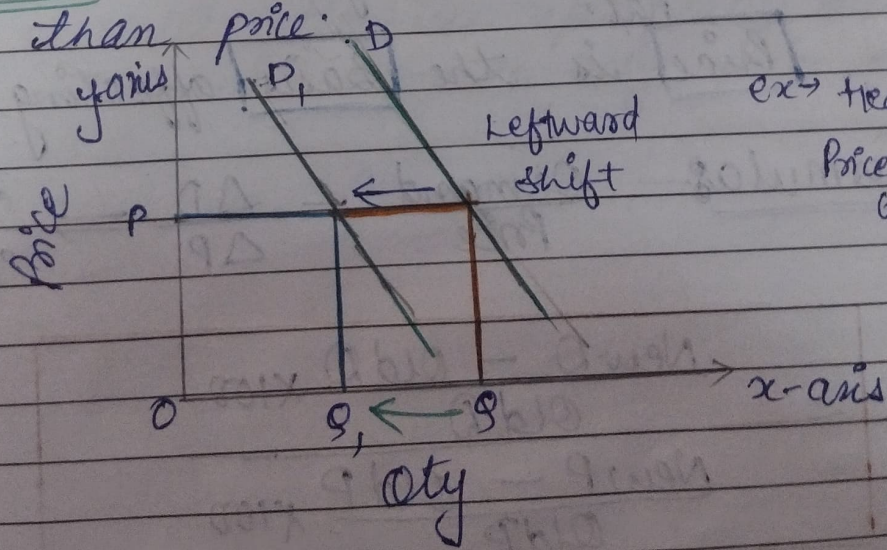 than price.
D
y axis
D1
ex→
Leftward
shift
Price
P
Price
O
Q1
Q
x-axis
Qty